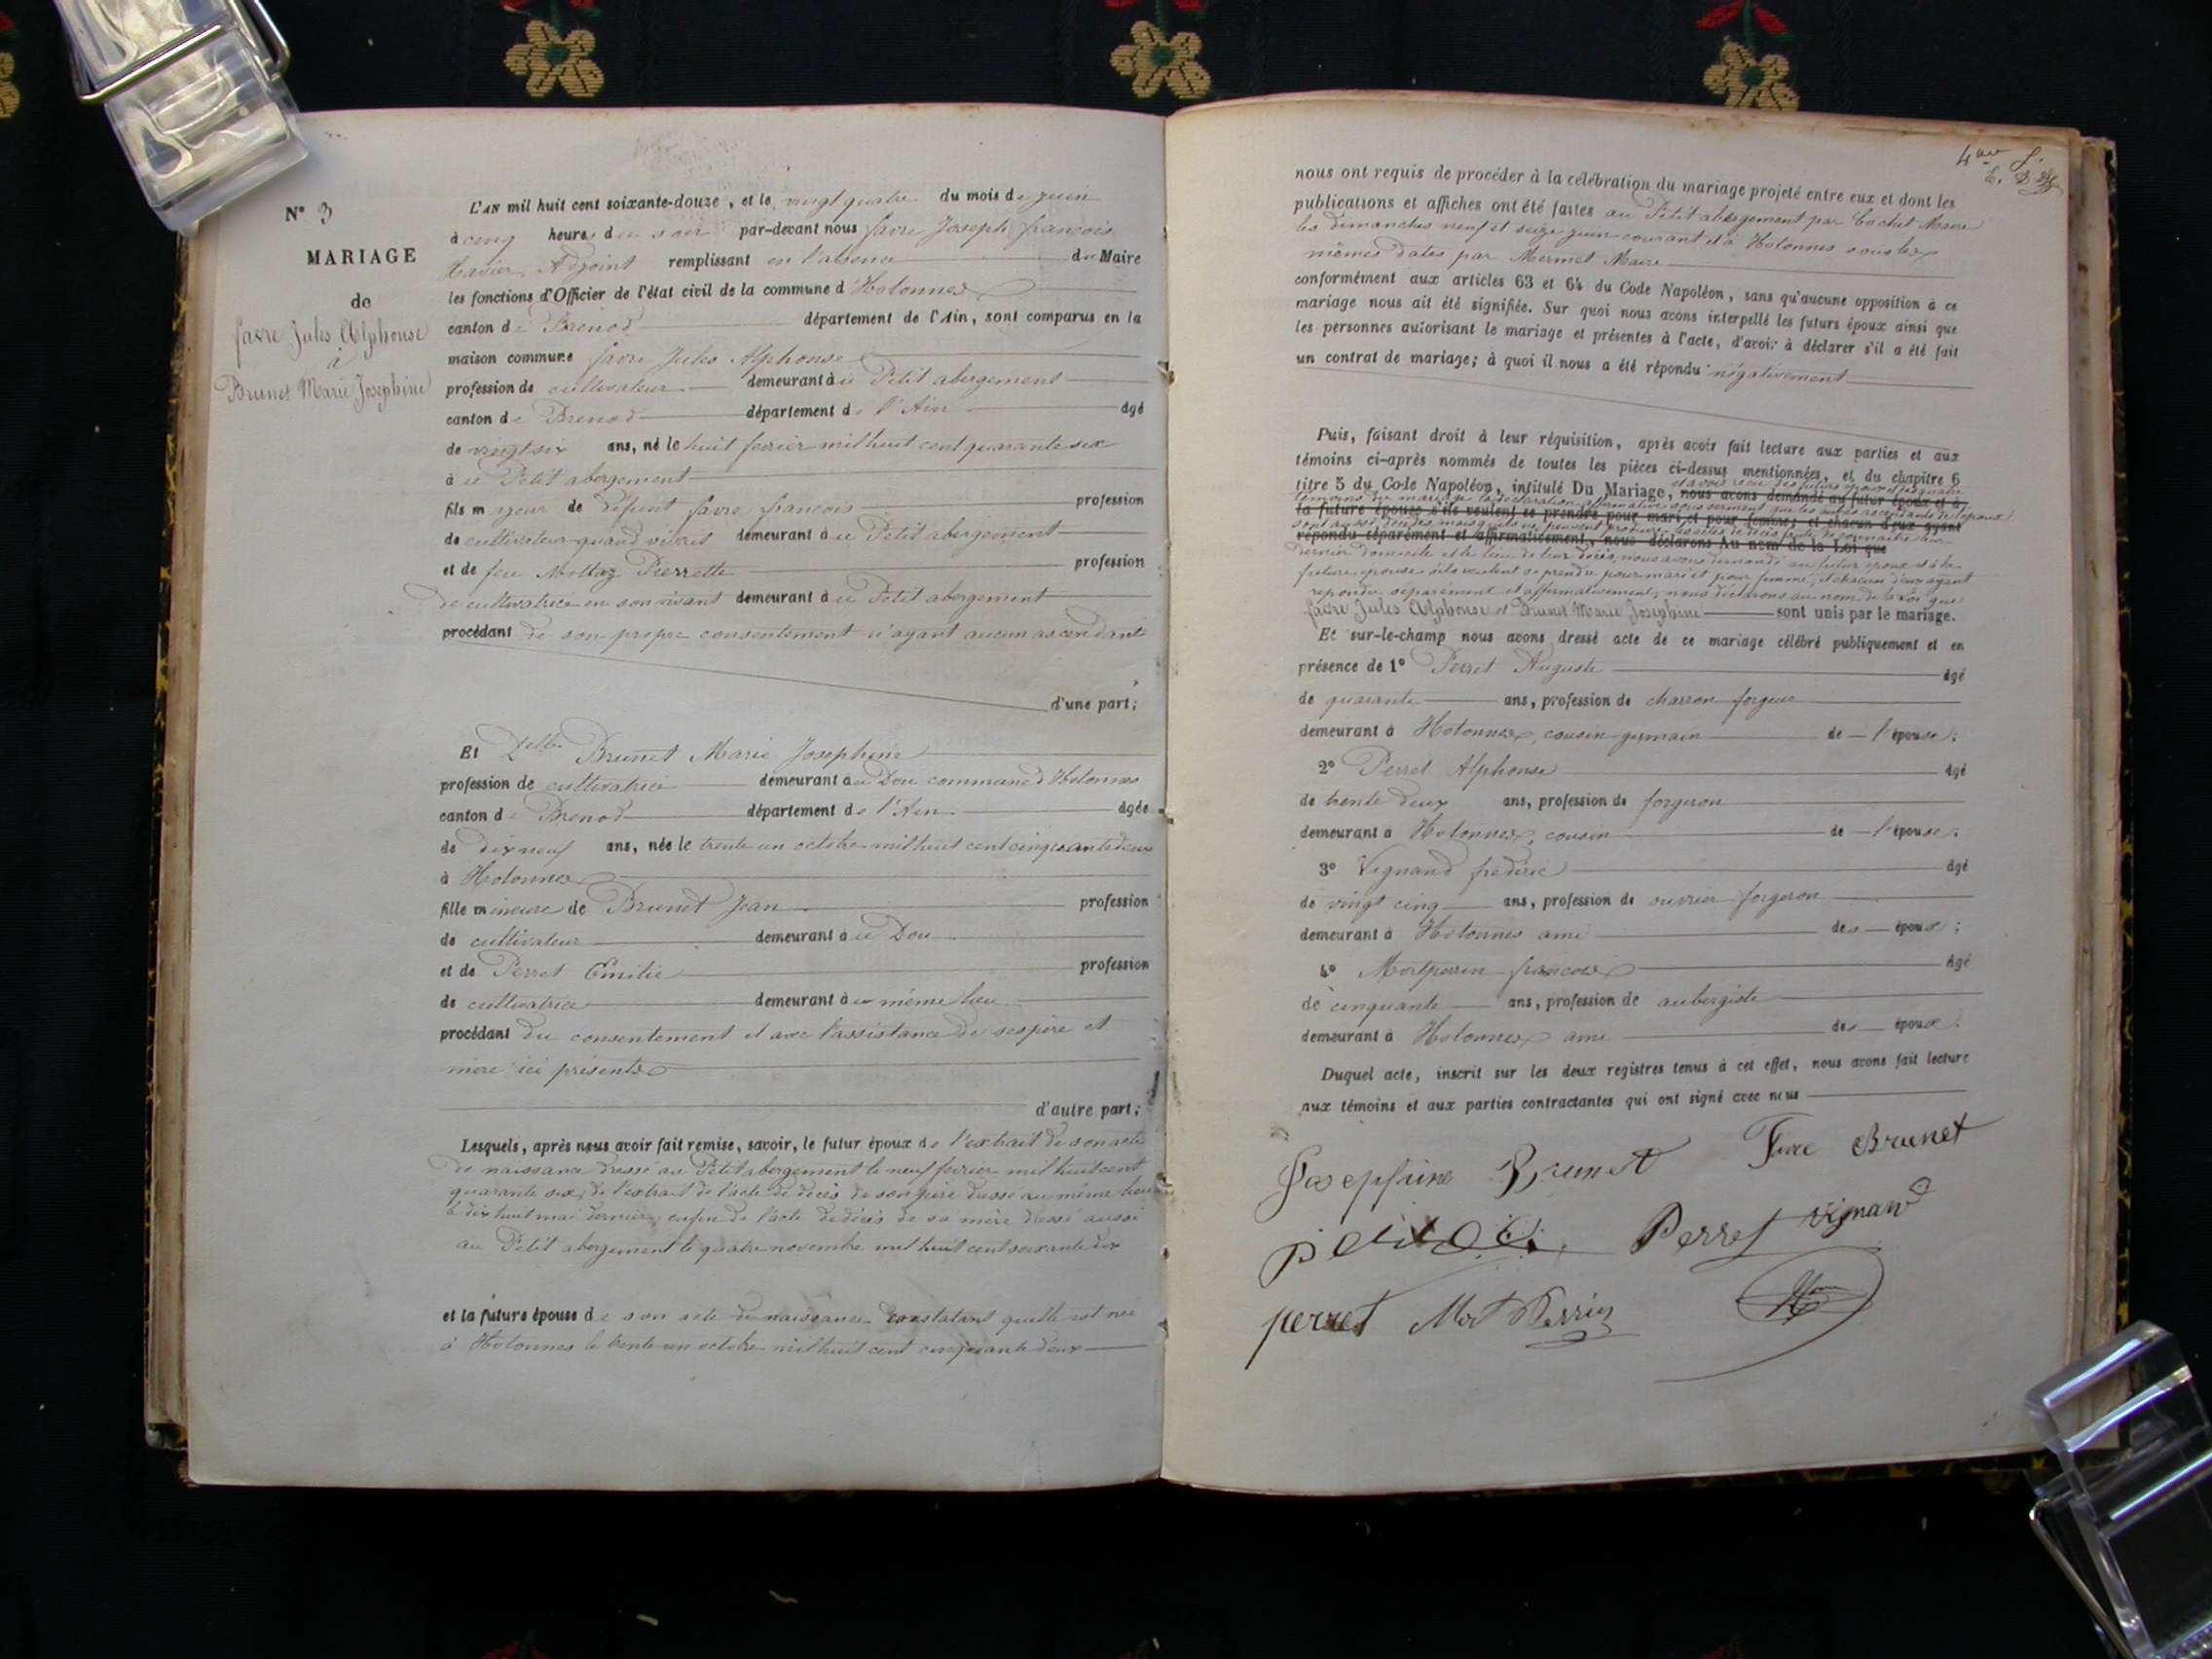 N° 3
MARIAGE
de
favre Jules Alphonse
à
Brunet Marie Josephine
L'AN mil huit cent soixante-douze, et le vingt quatre du mois de juin
à cinq heures du soir par-devant nous favre Joseph francois
Xavier Adjoint remplissant en l'absence du Maire
les fonctions d'Officier de l'état civil de la commune d'Hotonnes
canton de Brenod département de l'Ain, sont comparus en la
maison commune favre Jules Alphonse
profession de cultivateur demeurant à u Petit abergement
canton de Brenod département de l'Ain âgé
de vingt six ans, né le huit fevrier mil huit cent quarante six
à u Petit abergement
fils majeur de défunt favre francois profession
de cultivateur quand vivait demeurant à u Petit abergement
et de feu Mollaz Pierrette profession
de cultivatrice en son vivant demeurant à u Petit abergement
procédant de son propre consentement n'ayant aucun ascendant
d'une part;
Et Delle Brunet Marie Josephine
profession de cultivatrice demeurant à u Dou commune d'Hotonnes
canton de Brenod département de l'Ain âgée
de dix neuf ans, née le trente un octobre mil huit cent cinquante deux
à Hotonnes
fille mineure de Brunet Jean profession
de cultivateur demeurant à u Dou
et de Perret Emilie profession
de cultivatrice demeurant à u même lieu
procédant du consentement et avec l'assistance de ses père et
mère ici présents
d'autre part;
Lesquels, après nous avoir fait remise, savoir, le futur époux de l'extrait de son acte
de naissance dressé au Petit abergement le neuf fevrier mil huit cent
quarante six, de l'extrait de l'acte de décès de son père dressé au même lieu
le dix huit mai dernier, enfin de l'acte de décès de sa mère dressé aussi
au Petit abergement le quatre novembre mil huit cent soixante dix
et la future épouse de son acte de naissance constatant quelle est née
à Hotonnes le trente un octobre mil huit cent cinquante deux
nous ont requis de procéder à la célébration du mariage projeté entre eux et dont les
publications et affiches ont été faites au Petit abergement par Cochet Maire
les dimanches neuf et seize juin courant et à Hotonnes sous les
mêmes dates par Mermet Maire
conformément aux articles 63 et 64 du Code Napoléon, sans qu'aucune opposition à ce
mariage nous ait été signifiée. Sur quoi nous avons interpellé les futurs époux ainsi que
les personnes autorisant le mariage et présentes à l'acte, d'avoir à déclarer s'il a été fait
un contrat de mariage; à quoi il nous a été répondu négativement
Puis, faisant droit à leur réquisition, après avoir fait lecture aux parties et aux
témoins ci-après nommés de toutes les pièces ci-dessus mentionnées, et du chapitre 6
et avoir reçu des futurs époux et des quatre
titre 5 du Code Napoléon, intitulé Du Mariage, nous avons demandé au futur époux et à
témoins du mariage la déclaration affirmative sous serment que les autres ascendants de l'époux
la future épouse s'ils veulent se prendre pour mari et pour femme; et chacun d'eux ayant
répondu séparément et affirmativement, nous déclarons Au nom de la Loi que
dernier domicile et le lieu de leur décès, nous avons demandé au futur époux et à la
future épouse s'ils veulent se prendre pour mari et pour femme, et chacun d'eux ayant
répondu séparément et affirmativement, nous déclarons au nom de la Loi que
favre Jules Alphonse et Brunet Marie Josephine sont unis par le mariage.
Et sur-le-champ nous avons dressé acte de ce mariage célébré publiquement et en
présence de 1° Perret Auguste âgé
de quarante ans, profession de charron forgeur
demeurant à Hotonnes, cousin germain de l'épouse;
2° Perret Alphonse âgé
de trente deux ans, profession de forgeron
demeurant à Hotonnes, cousin de l'épouse;
3° Vignand frédéric âgé
de vingt cinq ans, profession de ouvrier forgeron
demeurant à Hotonnes ami des époux;
4° Mortperrin francois âgé
de cinquante ans, profession de aubergiste
demeurant à Hotonnes ami des époux.
Duquel acte, inscrit sur les deux registres tenus à cet effet, nous avons fait lecture
aux témoins et aux parties contractantes qui ont signé avec nous
Josephine Brunet Brunet
Perret Vignand
perret Mort Perrin